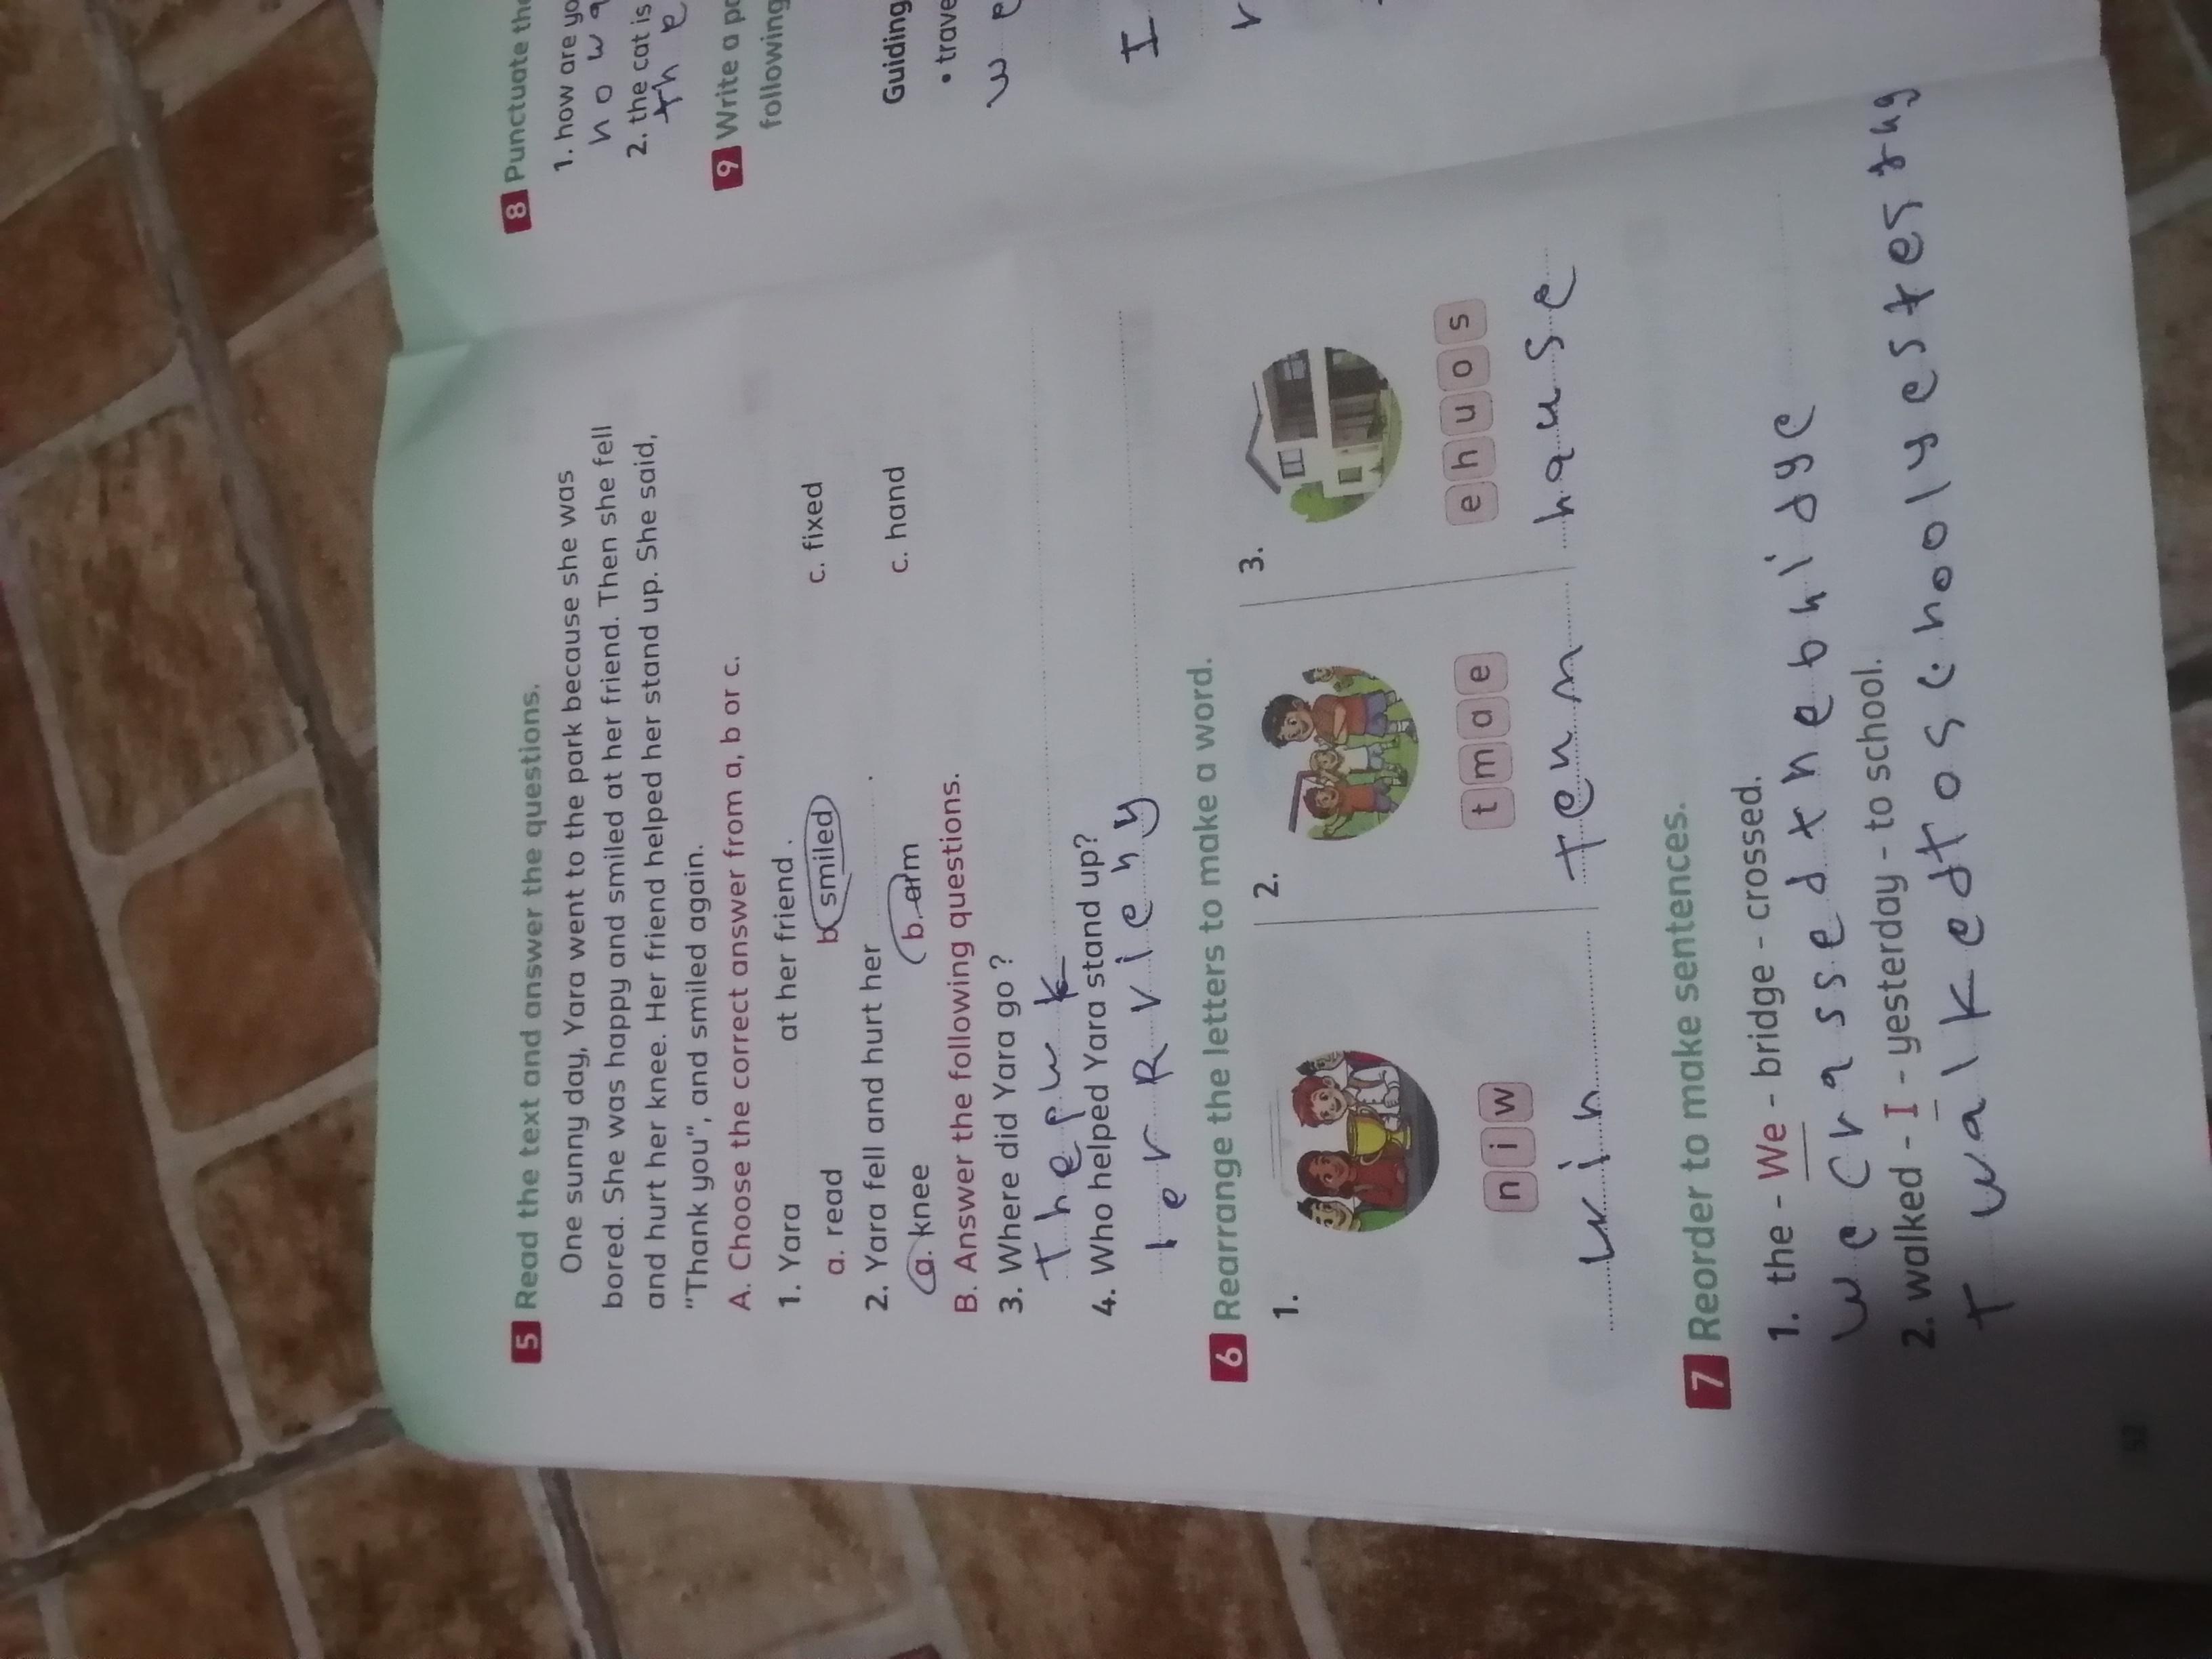 5 Read the text and answer the questions.
One sunny day, Yara went to the park because she was
bored. She was happy and smiled at her friend. Then she fell
and hurt her knee. Her friend helped her stand up. She said,
"Thank you", and smiled again.
A. Choose the correct answer from a, b or c.
1. Yara at her friend.
a. read b. smiled c. fixed
2. Yara fell and hurt her .
a. knee b. arm c. hand
B. Answer the following questions.
3. Where did Yara go?
4. Who helped Yara stand up?
6 Rearrange the letters to make a word.
1. 2. 3.
n i w t m a e e h u o s
win hause
7 Reorder to make sentences.
1. the - We - bridge - crossed.
we crassed the
2. walked - I - yesterday - to school.
walked to school
52
8 Punctuate the
1. how are yo
how a
2. the cat is
the
9 Write a pa
following
Guiding
• trave
we
I